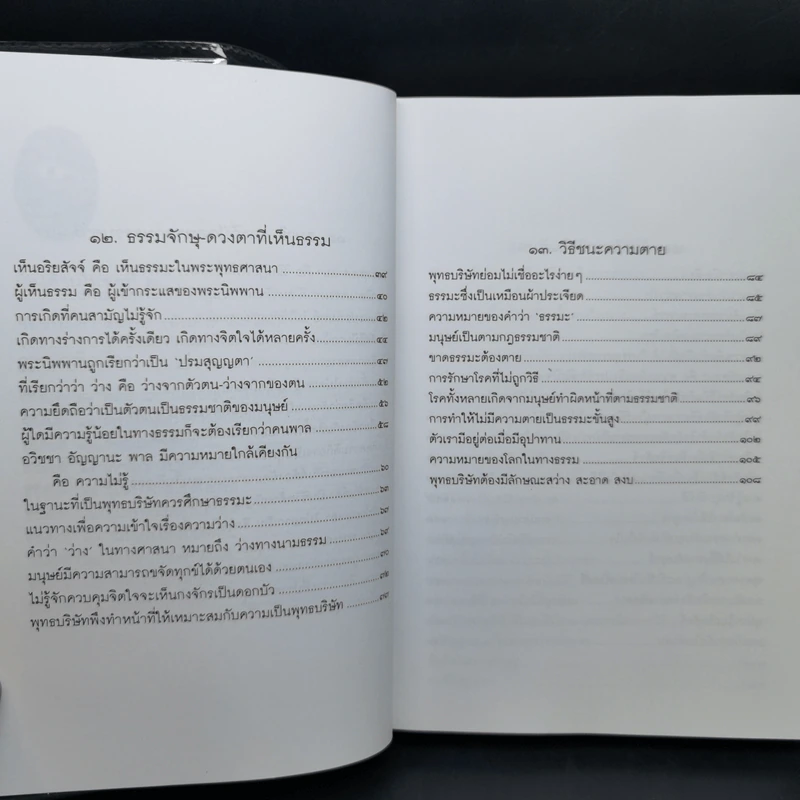 ๑๒. ธรรมจักษุ-ดวงตาที่เห็นธรรม
เห็นอริยสัจจ์ คือ เห็นธรรมะในพระพุทธศาสนา ๓๙
ผู้เห็นธรรม คือ ผู้เข้ากระแสของพระนิพพาน ๔๐
การเกิดที่คนสามัญไม่รู้จัก ๔๒
เกิดทางร่างการได้ครั้งเดียว เกิดทางจิตใจได้หลายครั้ง ๔๔
พระนิพพานถูกเรียกว่าเป็น 'ปรมสุญญตา' ๔๓
ที่เรียกว่าว่า ว่าง คือ ว่างจากตัวตน-ว่างจากของตน ๕๒
ความยึดถือว่าเป็นตัวตนเป็นธรรมชาติของมนุษย์ ๕๖
ผู้ใดมีความรู้น้อยในทางธรรมก็จะต้องเรียกว่าคนพาล ๕๘
อวิชชา อัญญานะ พาล มีความหมายใกล้เคียงกัน
คือ ความไม่รู้ ๖๐
ในฐานะที่เป็นพุทธบริษัทควรศึกษาธรรมะ
แนวทางเพื่อความเข้าใจเรื่องความว่าง
คำว่า 'ว่าง' ในทางศาสนา หมายถึง ว่างทางนามธรรม
มนุษย์มีความสามารถขจัดทุกข์ได้ด้วยตนเอง ๗๐
ไม่รู้จักควบคุมจิตใจจะเห็นกงจักรเป็นดอกบัว ๗๒
พุทธบริษัทพึงทำหน้าที่ให้เหมาะสมกับความเป็นพุทธบริษัท ๗๗
๑๓. วิธีชนะความตาย
พุทธบริษัทย่อมไม่เชื่ออะไรง่ายๆ ๘๔
ธรรมะซึ่งเป็นเหมือนผ้าประเจียด ๘๕
ความหมายของคำว่า 'ธรรมะ' ๘๗
มนุษย์เป็นตามกฎธรรมชาติ ๘๙
ขาดธรรมะต้องตาย ๙๒
การรักษาโรคที่ไม่ถูกวิธี ๙๔
โรคทั้งหลายเกิดจากมนุษย์ทำผิดหน้าที่ตามธรรมชาติ ๙๖
การทำให้ไม่มีความตายเป็นธรรมะขั้นสูง ๙๙
ตัวเรามีอยู่ต่อเมื่อมีอุปาทาน ๑๐๒
ความหมายของโลกในทางธรรม ๑๐๕
พุทธบริษัทต้องมีลักษณะสว่าง สะอาด สงบ ๑๐๘